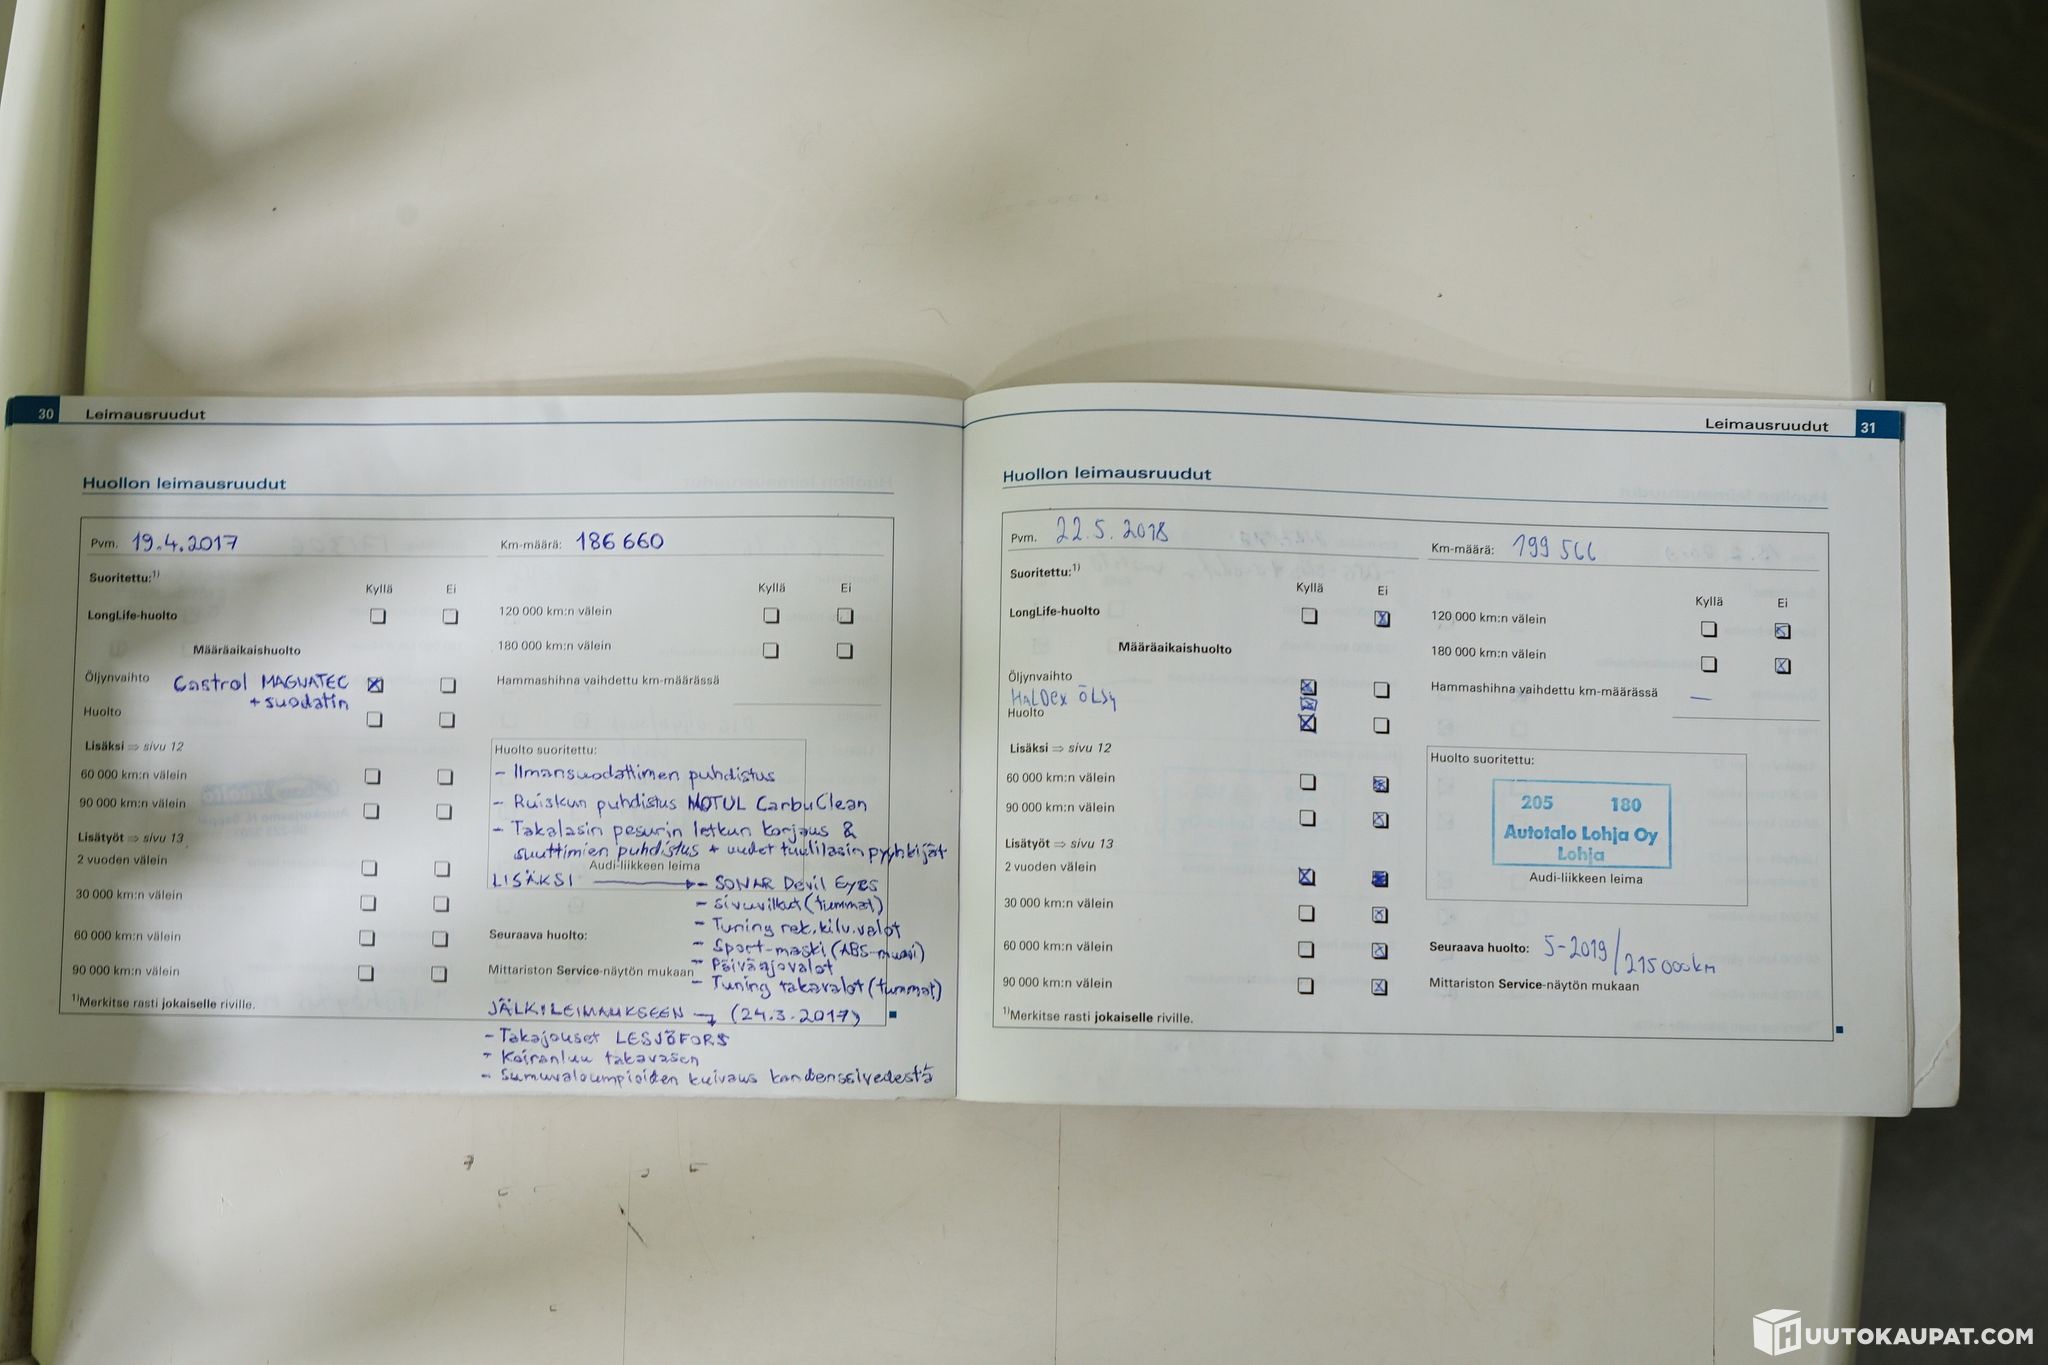 30 Leimausruudut
Huollon leimausruudut
Pvm. 19.4.2017 Km-määrä: 186 660
Suoritettu:1)
Kyllä Ei Kyllä Ei
LongLife-huolto 120 000 km:n välein
Määräaikaishuolto 180 000 km:n välein
Öljynvaihto Castrol MAGNATEC Hammashihna vaihdettu km-määrässä
+ suodatin
Huolto
Lisäksi ⇒ sivu 12
60 000 km:n välein
90 000 km:n välein
Lisätyöt ⇒ sivu 13
2 vuoden välein
30 000 km:n välein
60 000 km:n välein
90 000 km:n välein
1)Merkitse rasti jokaiselle riville.
Huolto suoritettu:
- Ilmansuodattimen puhdistus
- Ruiskun puhdistus MOTUL CarbuClean
- Takalasin pesurin letkun korjaus &
suuttimien puhdistus + uudet tuulilasin pyyhkijät
Audi-liikkeen leima
LISÄKSI → - SONAR Devil Eyes
- sivuvilkut (tummat)
- Tuning rek.kilv.valot
- Sport-maski (ABS-muovi)
- Päiväajovalot
- Tuning takavalot (tummat)
Seuraava huolto:
Mittariston Service-näytön mukaan
JÄLKILEIMAUKSEEN → (24.3.2017)
- Takajouset LESJÖFORS
- Koiranluu takavasen
- Sumuvaloumpioiden kuivaus kondenssivedestä
Leimausruudut 31
Huollon leimausruudut
Pvm. 22.5.2018 Km-määrä: 199 566
Suoritettu:1)
Kyllä Ei Kyllä Ei
LongLife-huolto 120 000 km:n välein
Määräaikaishuolto 180 000 km:n välein
Öljynvaihto Hammashihna vaihdettu km-määrässä —
HALDEX ÖLJY
Huolto
Lisäksi ⇒ sivu 12
60 000 km:n välein
90 000 km:n välein
Lisätyöt ⇒ sivu 13
2 vuoden välein
30 000 km:n välein
60 000 km:n välein
90 000 km:n välein
1)Merkitse rasti jokaiselle riville.
Huolto suoritettu:
205 180
Autotalo Lohja Oy
Lohja
Audi-liikkeen leima
Seuraava huolto: 5-2019/215000km
Mittariston Service-näytön mukaan
HUUTOKAUPAT.COM